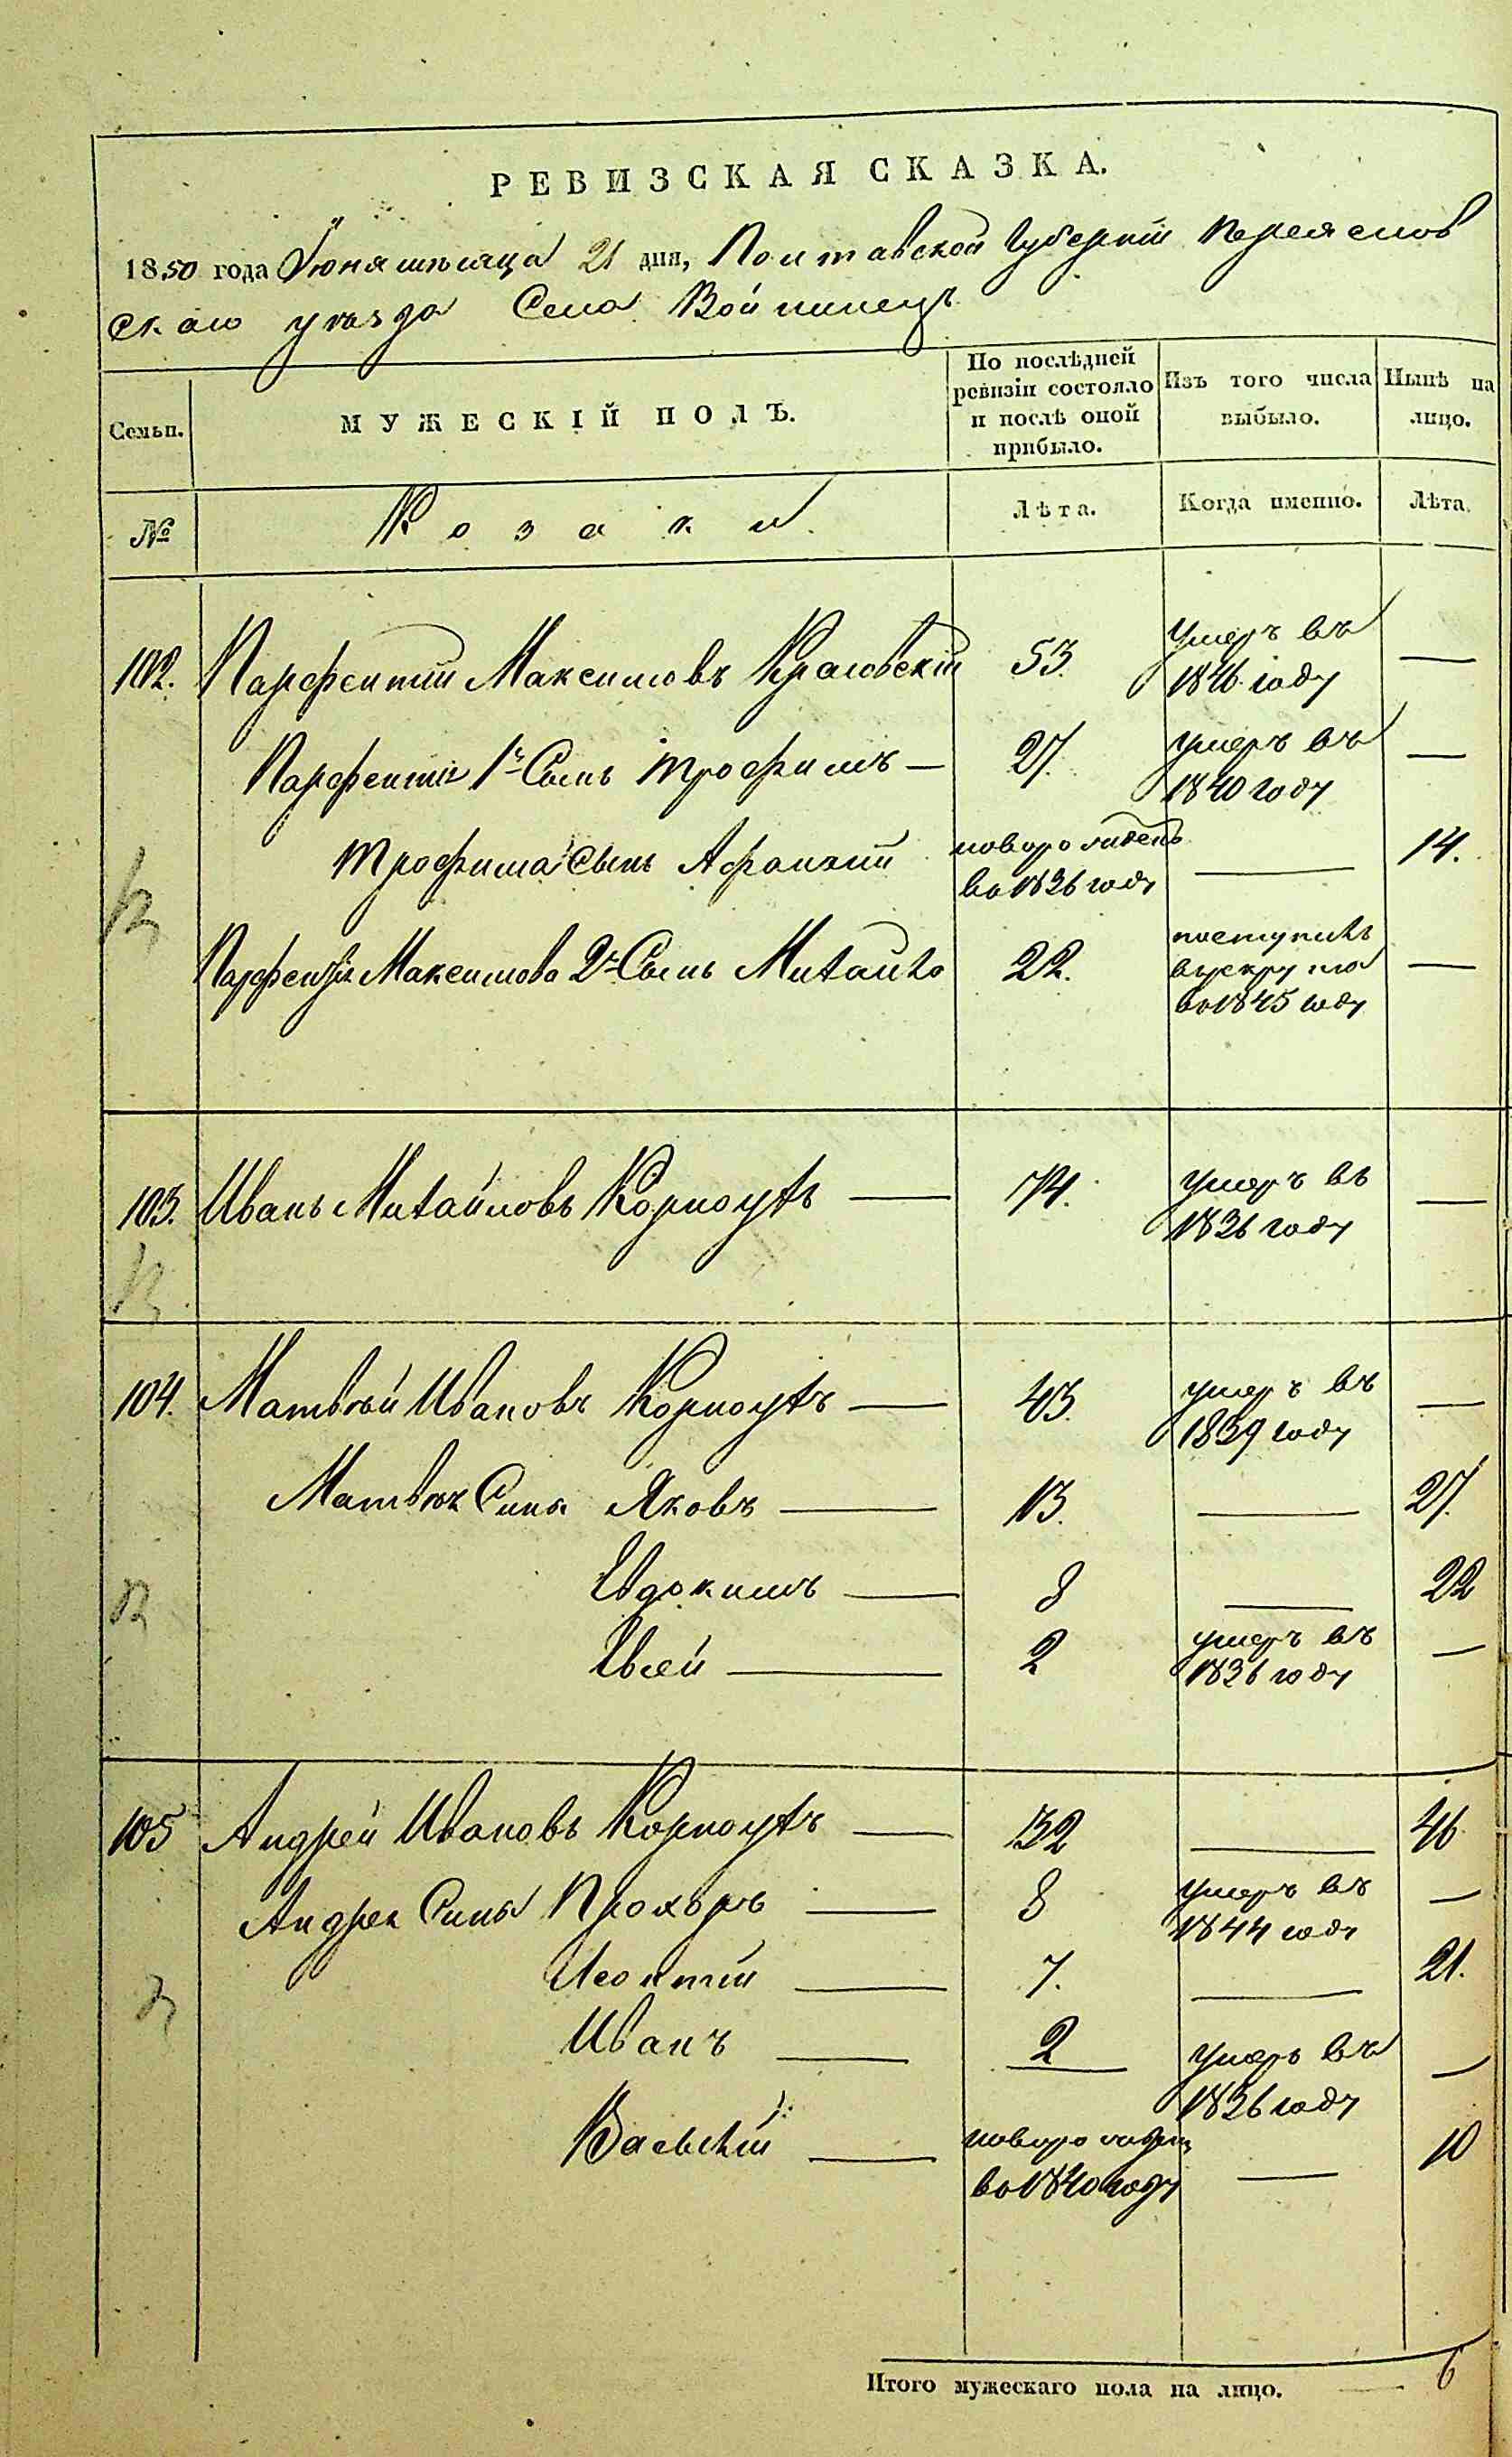 РЕВИЗСКАЯ СКАЗКА.
1850 года Іюня мѣсяца 21 дня, Полтавской Губерніи Переяслов
скаго уѣзда Села Войтинецъ
Семьи.
МУЖЕСКІЙ ПОЛЪ.
По послѣдней ревизіи состояло и послѣ оной прибыло.
Изъ того числа выбыло.
Нынѣ на лицо.
№
Козаки
Лѣта.
Когда именно.
Лѣта.
102. Парфентій Максимовъ 53. умеръ въ 1846 году —
Парфентія 1й Сынъ Трофимъ — 27. умеръ въ 1840 году —
Трофима Сынъ Афанасий новорожденъ во 1836 году — 14.
Парфентія Максимова 2й Сынъ Михайло 22. поступилъ въ рекруты во 1845 году —
103. Иванъ Михайловъ Корноухъ — 74. умеръ въ 1836 году —
104. Матвѣй Ивановъ Корноухъ — 43. умеръ въ 1839 году —
Матвѣя Сины Яковъ — 13. — 27.
Евдокимъ — 8 — 22
Евсей — 2 умеръ въ 1836 году —
105 Андрей Ивановъ Корноухъ — 32 — 46
Андрея Сины Прохъръ — 8 умеръ въ 1844 году —
Леонтий — 7. — 21.
Иванъ — 2 умеръ въ 1836 году —
Васылій — новорожден во 1840 году — 10
Итого мужескаго пола на лицо. — 6